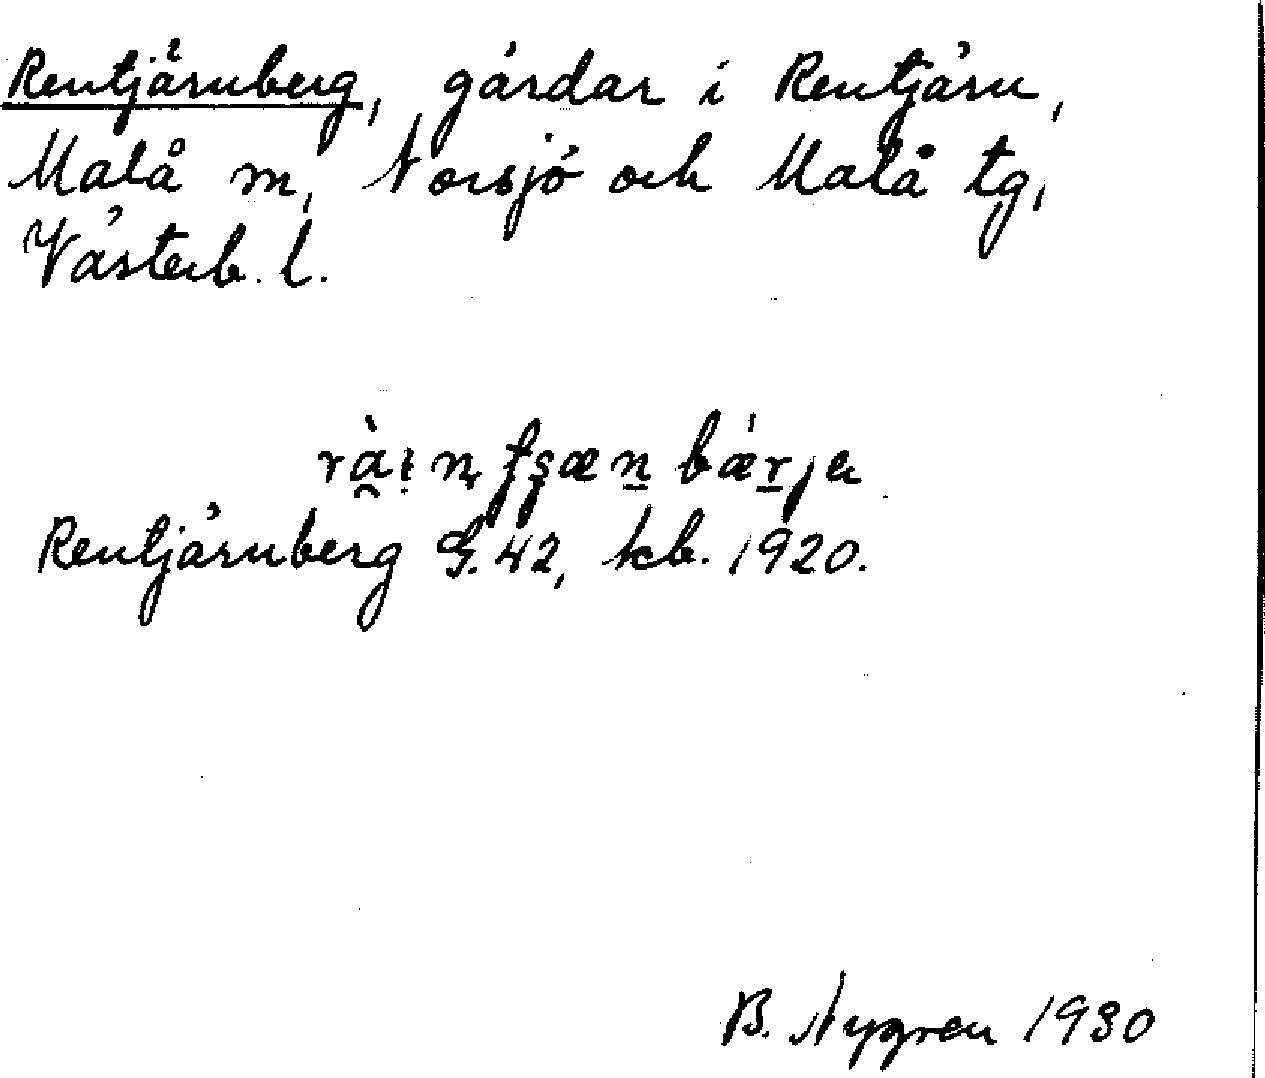 Rentjärnberg, gårdar i Rentjärn,
Malå m, Norsjö och Malå tg,
Västerb. l.
rὰ̯i̩n̥ ʈʂæn̠ bǽr̠ja
Rentjärnberg G. 42, kb. 1920.
B. Nygren 1930